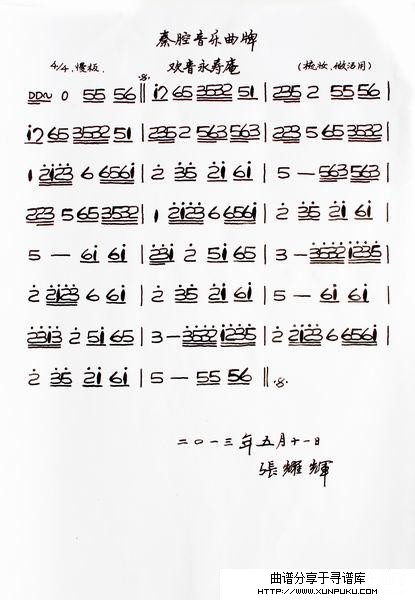 秦腔音乐曲牌
4/4.慢板. 欢音永寿庵 (梳妆、做活用)
0 55 56 ‖ i7 65 3532 51 | 235 2 55 56 |
i7 65 3532 51 | 2352 563 563 | 223 5 65 3532 |
1 2123 6 6561 | 2 35 21 61 | 5 — 563 563 |
223 5 65 3532 | 1 2123 6 6561 | 2 35 21 61 |
5 — 61 61 | 2321 2 51 65 | 3 — 3532 1235 |
2 2123 6 61 | 2 35 21 61 | 5 — 61 61 |
2313 2 51 65 | 3 — 3532 1235 | 2 2123 6 6561 |
2 35 21 61 | 5 — 55 56 ‖
二〇一三年五月十一日
張耀輝
曲谱分享于寻谱库
HTTP://WWW.XUNPUKU.COM